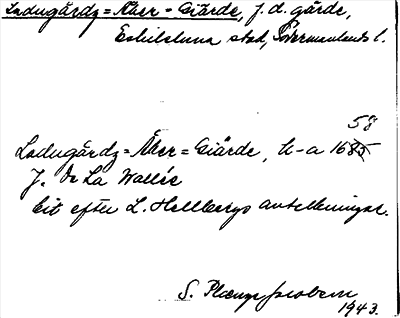 Ladugårdz=Åker=Giärde, f.d. gärde,
Eskilstuna stad, Södermanlands l.
58
Ladugårdz=Åker=Giärde, h-a 1685
J. de La Vallée
Cit efter L. Hellbergs anteckningar.
S. Plænge Jacobson
1943.